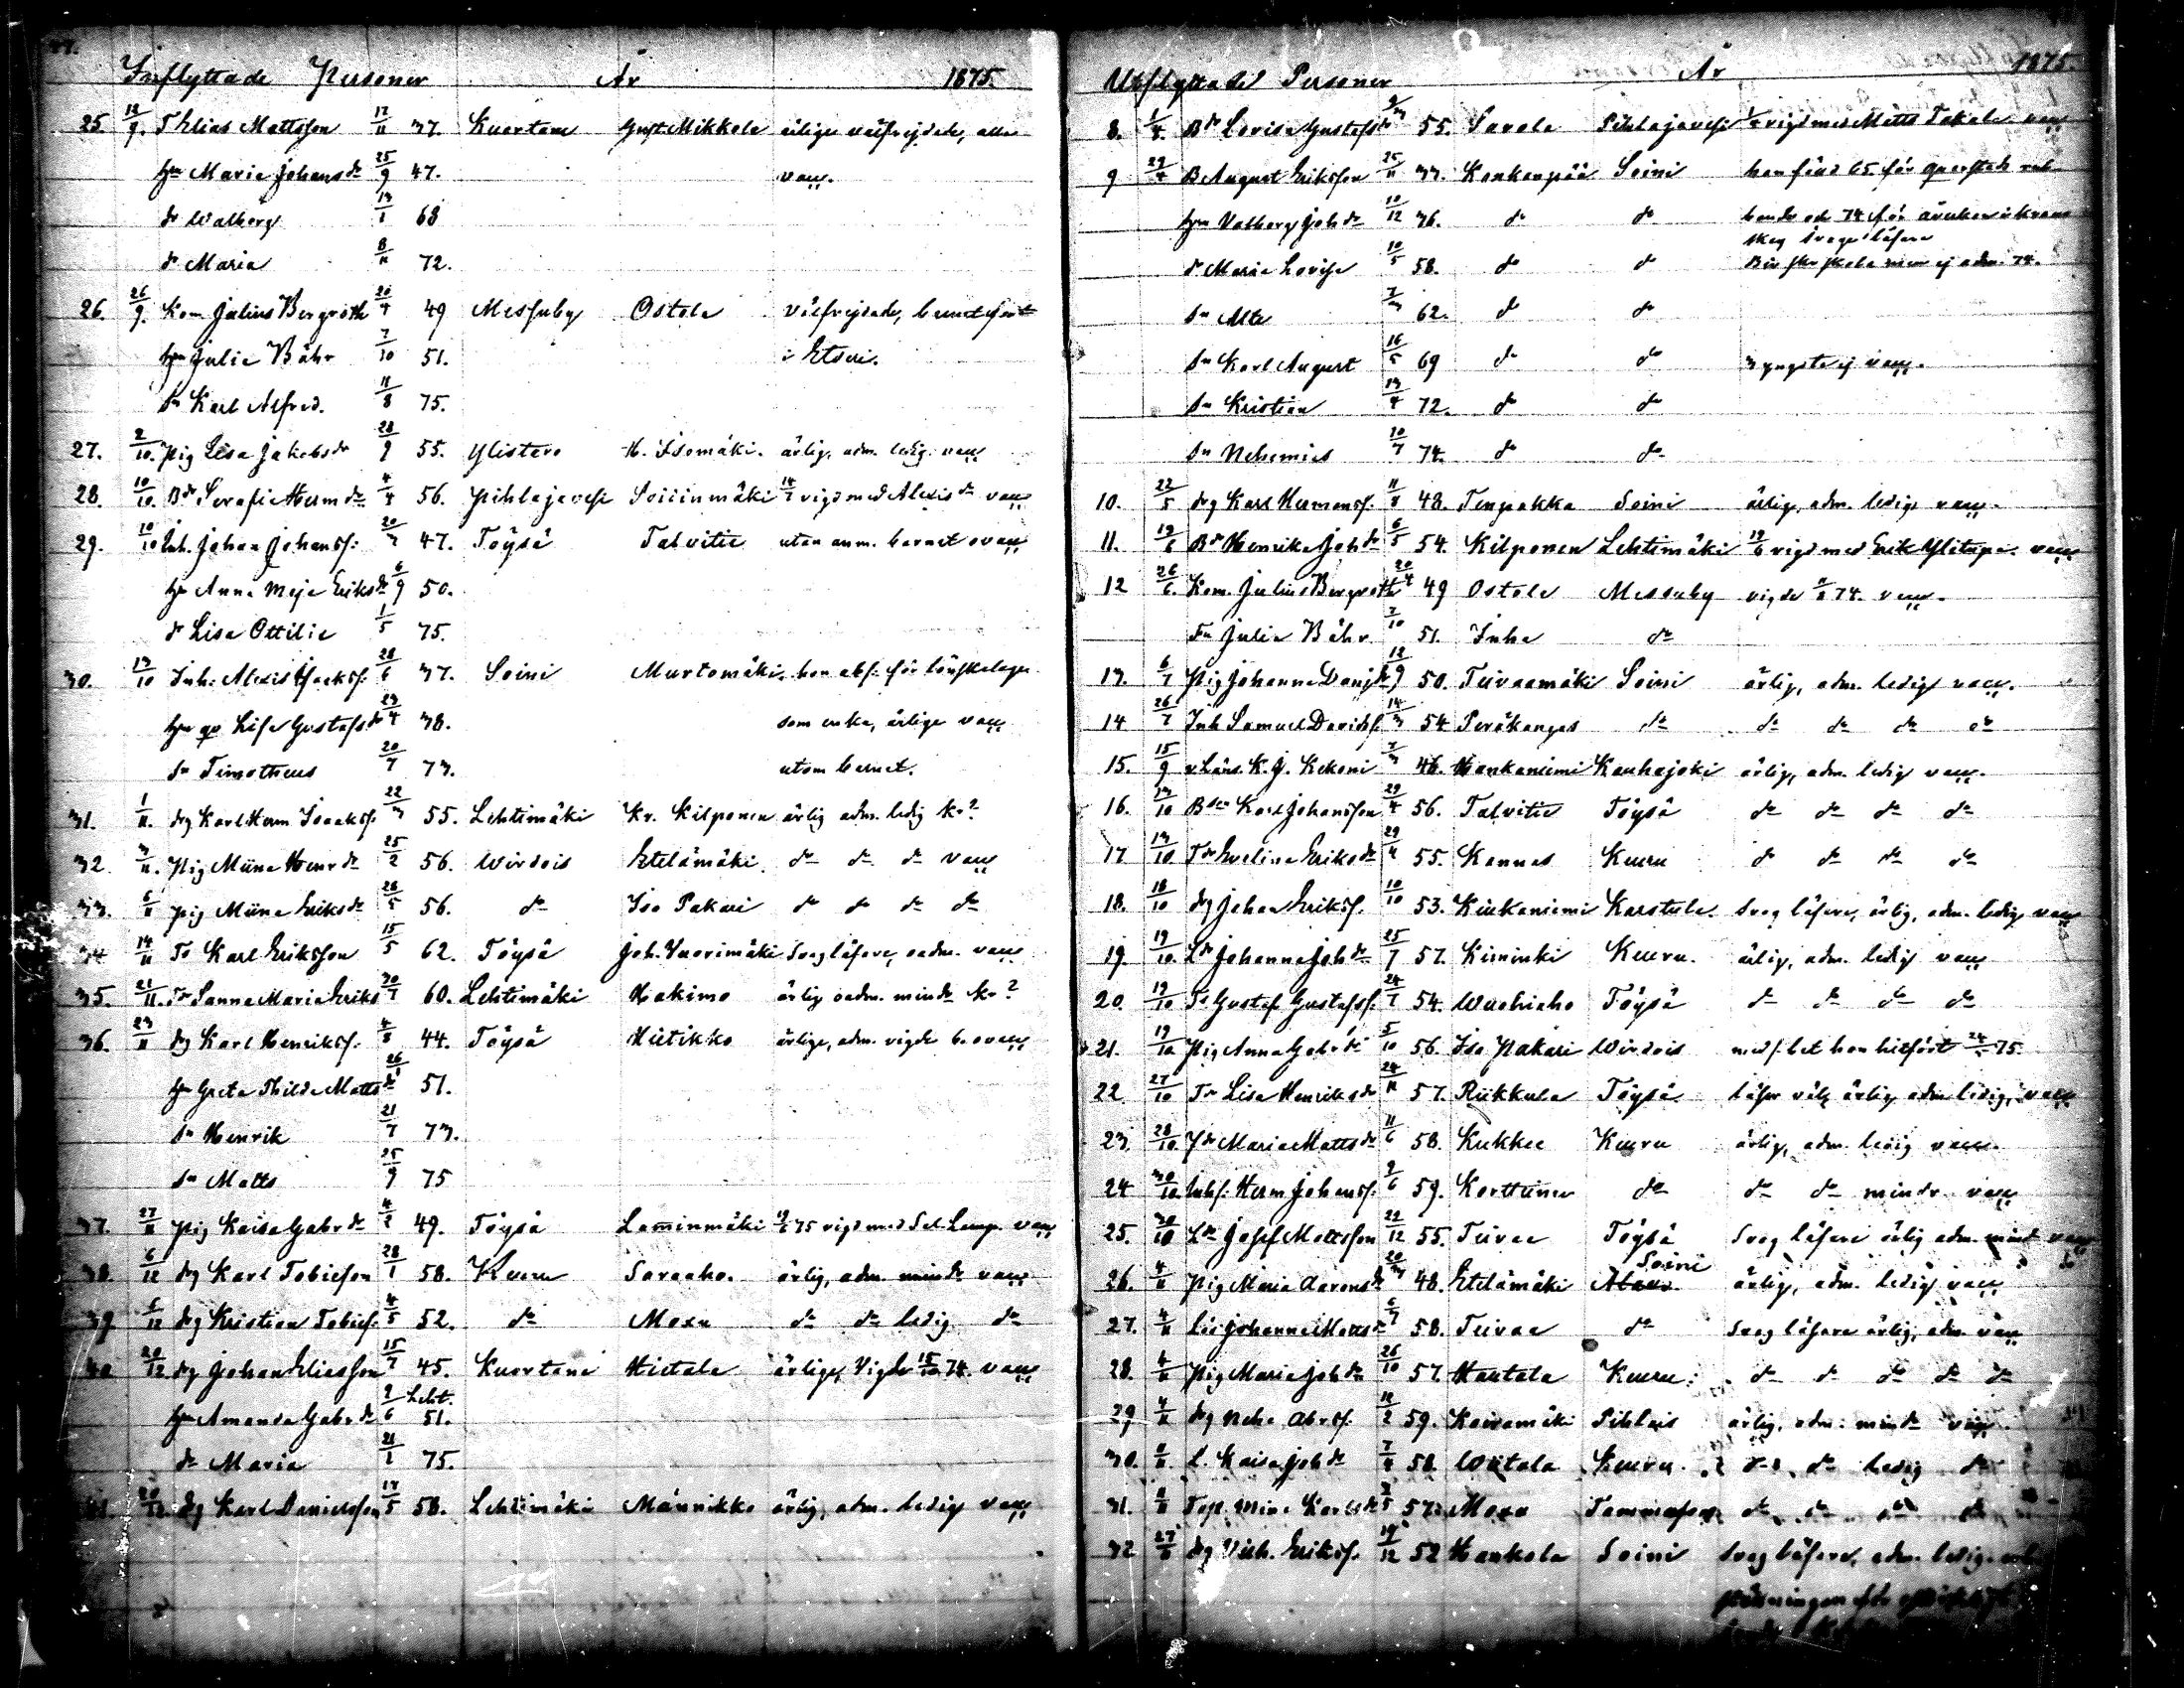 Inflyttade Personer År 1875.
25 18/9. Thlias Mattsson 12/11 37. Kuortane Gust Mikkola ärlige välfrejdade, adm
hu Maria Johans dr 25/9 47. vacc.
dr Walborg 13/1 68
dr Maria 8/11 72.
26. 26/9. Kom Julius Bergroth 20/4 49 Messuby Ostola välfrejdade, barnet född
hu Julia Bähr 7/10 51. i Etseri.
sn Karl Alfred. 11/8 75.
27. 2/10. Pig Lisa Jakobs dr 28/9 55. Ylistaro H. Isomäki. ärlig, adm. ledig. vacc
28. 10/10. B dr Serafia Herm dr 4/4 56. Pihlajavesi Soiiinmäki vigd med Alexis dn vacc
29. 10/10 Inh. Johan Johanss. 20/3 47. Töysä Talvitie utan anm. barnet ovacc
hu Anna Maja Eriks dr 6/9 50.
dr Lisa Ottilia 1/5 75.
30. 13/10 Inh. Alexis Isakss. 28/6 37. Soini Murtomäki, hon abs. för lönskalage
hu Lisa Gustafs dr 29/4 38. som enka, ärliga vacc
sn Timotheus 20/7 73. utom barnet.
31. 1/11. drg Karl Herm Isakss. 22/3 55. Lehtimäki Kr. Kilponen ärlig adm. ledig kr?
32. 3/11. Pig Miina Henr dr 25/2 56. Wirdois Etelämäki. do do do vacc
33. 6/11 Pig Miina Eriks dr 26/5 56. do Iso Pakari do do do do
34 14/11 Ts Karl Eriksson 15/5 62. Töysä Joh. Vuorimäki Svag läsare, oadm. vacc
35. 21/11. Tr Sanna Maria Eriks 30/7 60. Lehtimäki Hakimo ärlig oadm. mindr kr?
36. 23/11 drg Karl Henrikss. 4/8 44. Töysä Hietikko ärlige, adm. vigde b. ovacc
hu Greta Thilda Matts dr 26/1 51.
sn Henrik 21/7 73.
sn Matts 25/9 75
37. 27/11 Pig Kaisa Gabr dr 4/2 49. Töysä Lamminmäki 75 vigd med Sal. Lamp. vacc
38. 6/12 drg Karl Tobiesson 28/1 58. Keuru Saraaho. ärlig, adm. mindr vacc
39 6/12 drg Kristian Tobiess. 4/5 52. do Moxu do do ledig do
40 20/12 drg Johan Eliasson 15/7 45. Kuortane Hietala ärlige, Vigde 15/10 74. vacc
hu Amanda Gabr dr 2/6 Leht. 51.
dr Maria 21/1 75.
41. 20/12. drg Karl Danielsson 17/5 58. Lehtimäki Männikko ärlig, adm. ledig vacc
Utflyttade Personer År 1875.
8. 1/4. B dr Lovisa Gustafs dr 55. Savola Pihlajavesi vigd med Matts Takala vacc
9 29/4 B August Eriksson 25/11 33. Konkonpää Soini
hu Valborg Joh dr 10/12 36. do do
dr Maria Lovisa 10/5 58. do do
sn Mts 7/3 62. do do
sn Karl August 16/5 69 do do 3 yngste ej vacc.
sn Kristian 13/4 72. do do
sn Nehemias 30/7 74. do do
10. 22/5 drg Karl Hermanss. 11/8 48. Tenpakka Soini ärlig, adm. ledig vacc.
11. 19/6 B dr Henrika Joh dr 6/5 54. Kilponen Lehtimäki 19/6 vigd med Erik Ylitupa. vacc
12 26/6. Kom. Julius Bergroth 20/4 49 Ostola Messuby vigde 74. vacc.
Fu Julia Bähr 7/10 51. Inha do
13. 6/7 Pig Johanna Danj dr 12/9 50. Tuvaamäki Soini ärlig, adm. ledig vacc.
14 26/7 Inh Samuel Davidss. 14/3 54 Peräkangas do do do do do
15. 15/9 v Läns. K. J. Kekoni 7/3 46. Hankaniemi Kauhajoki ärlig, adm. ledig vacc.
16. 13/10 B sn Karl Johansson 29/4 56. Talvitie Töysä do do do do
17 13/10 T dr Evelina Eriks dr 29/4 55. Kannas Keuru do do do do
18. 18/10 drg Johan Erikss. 10/10 53. Kiukaniemi Karstula. svag läsare, ärlig, adm. ledig vacc
19. 19/10 L dr Johanna Joh dr 25/7 57. Kiminki Keuru. ärlig, adm. ledig vacc
20. 19/10 Ts Gustaf Gustafss. 24/7 54. Wuohiaho Töysä do do do do
21. 19/10 Pig Anna Gabr dr 5/10 56. Iso Pakari Wirdois
22 27/10 Tr Lisa Henriks dr 24/11 57. Riikkula Töysä läser väl, ärlig adm ledig, vacc
23. 28/10 J dr Maria Matts dr 11/6 58. Kukkee Keuru ärlig, adm. ledig vacc.
24 30/10 Inhs. Herm Johanss. 2/6 59. Korttunen do do do mindr. vacc
25. 30/10 L sn Josef Mattsson 22/12 55. Tuvee Töysä Svag läsare ärlig adm. mindr vacc
26. 4/11 Pig Maria Aarons dr 20/3 48. Etelämäki Soini ärlig, adm. ledig vacc
27. 4/11 Lis Johanna Matts dr 6/7 58. Tuvae do Svag läsare ärlig, adm. vacc
28. 4/11 Pig Maria Joh dr 26/10 57. Hautala Keuru. do do do do do
29 4/11 drg Nehe Abrss. 12/2 59. Koivumäki Pihlais ärlig, adm. mindr vacc.
30. 8/11 l. Kaisa Joh dr 7/4 58 Wiitala Keuru do do ledig do
31. 8/11 Miina Karls dr 57. Moxu Tammerfors do do do do
32 27/11 drg Vilh. Erikss. 19/12 52 Hankola Soini Svag läsare, adm. ledig